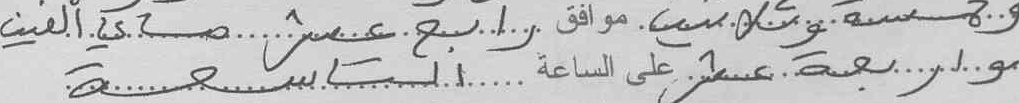 وخمسة وثلاثين موافق رابع عشر ماي ألفين
وأربعة عشر على الساعة التاسعة